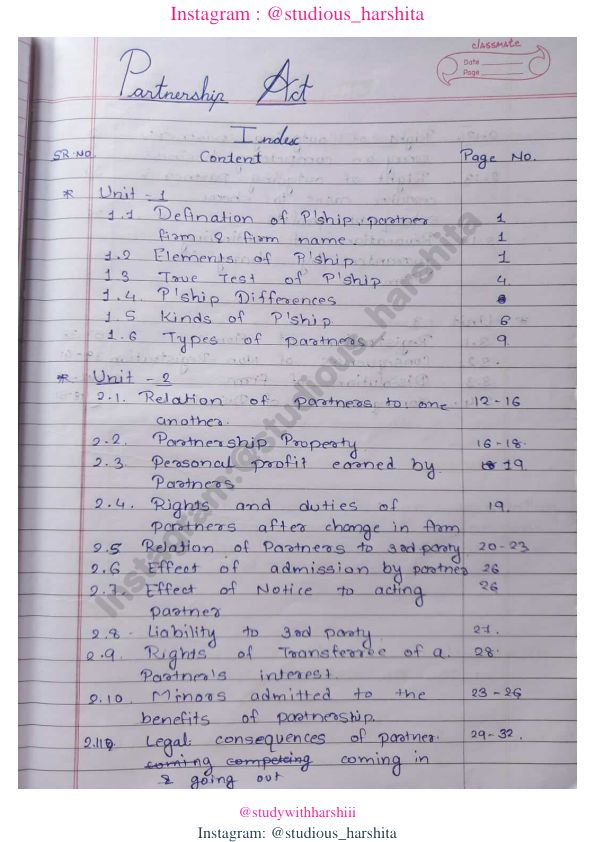 Instagram : @studious_harshita
classmate
Date
Page
Partnership Act
Index
SR.NO. Content Page No.
* Unit - 1
1.1 Defination of P'ship, partner 1
firm & firm name 1
1.2 Elements of P'ship 1
1.3 True Test of P'ship 4
1.4. P'ship Differences
1.5 Kinds of P'ship 6
1.6 Types of partners 9
* Unit - 2
2.1. Relation of partners to one 12-16
another.
2.2. Partnership Property 16-18.
2.3. Personal profit earned by 19.
Partners
2.4. Rights and duties of 19.
partners after change in firm
2.5 Relation of Partners to 3rd party 20-23
2.6 Effect of admission by partner 26
2.7. Effect of Notice to acting 26
partner
2.8. Liability to 3rd party 27.
2.9. Rights of Transferree of a. 28.
Partner's interest.
2.10. Minors admitted to the 23-26
benefits of partnership.
2.11 Legal consequences of partner. 29-32.
coming competing coming in
& going out
Instagram:@studious_harshita
@studywithharshiii
Instagram: @studious_harshita